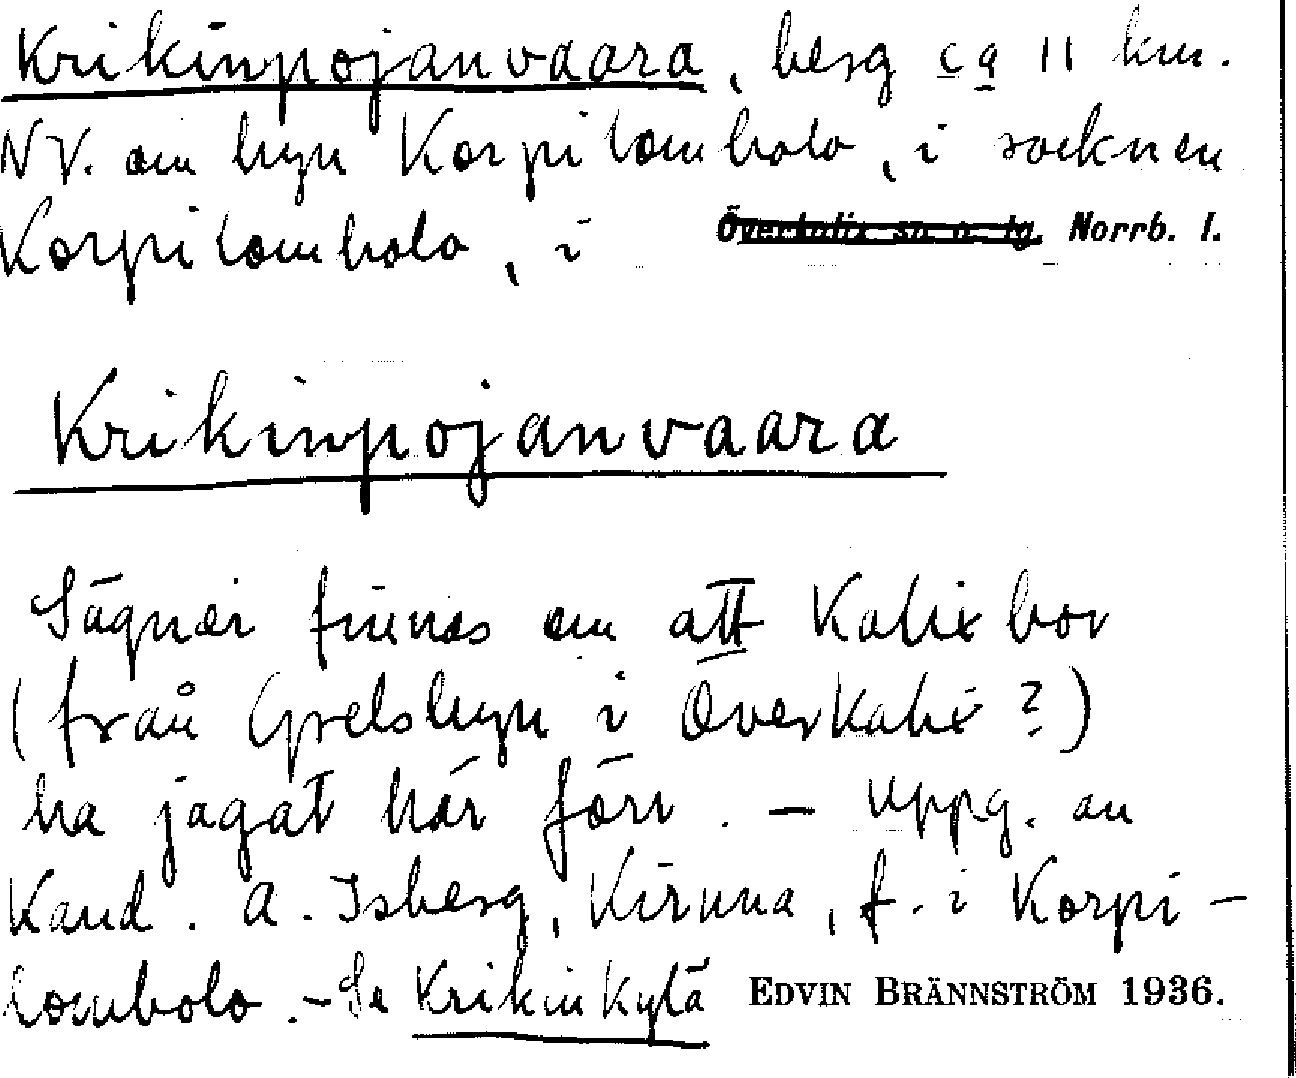 Krikinpojanvaara, berg ca 11 km.
NV. om byn Korpilombolo, i socknen
Korpilombolo, i Överkalix sn o. tg. Norrb. l.
Krikinpojanvaara
Sägner finnas om att Kalixbor
(från Grelsbyn i Överkalix?)
ha jagat här förr. – Uppg. av
Kand. A. Isberg, Kiruna, f. i Korpi-
lombolo. – Se Krikinkylä EDVIN BRÄNNSTRÖM 1936.